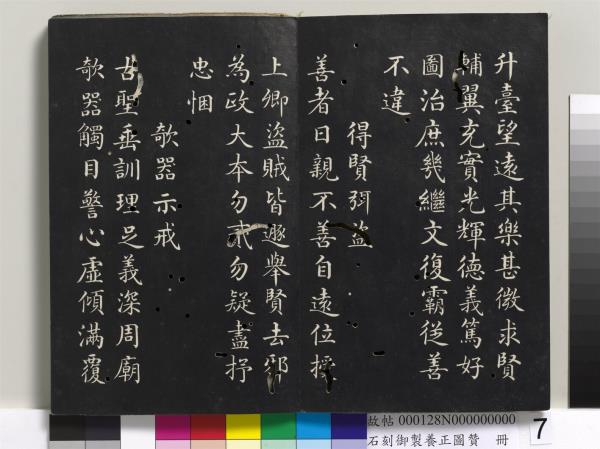 升臺望遠其樂甚微求賢
輔翼充實光輝德義篤好
圖治庶幾繼文復霸從善
不違
得賢弭盜
善者日親不善自遠位授
上卿盜賊皆遯舉賢去邪
為政大本勿貳勿疑盡抒
忠悃
欹器示戒
古聖垂訓理足義深周廟
欹器觸目警心虛傾滿覆
故帖 000128N000000000
石刻御製養正圖贊 冊
7